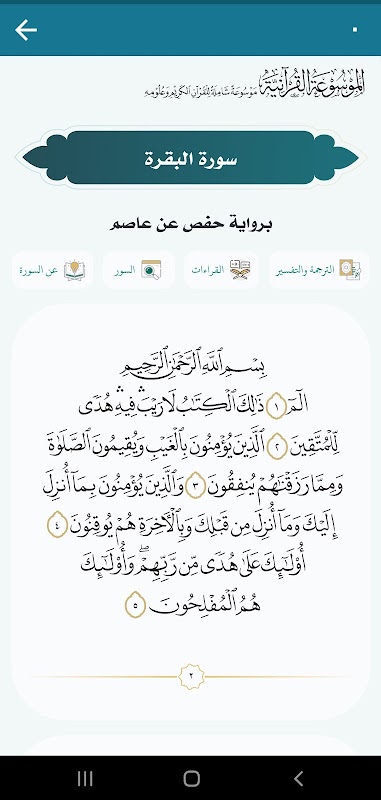 الموسوعة القرآنية
موسوعة شاملة للقرآن الكريم وعلومه
سورة البقرة
برواية حفص عن عاصم
الترجمة والتفسير
القراءات
السور
عن السورة
بِسْمِ ٱللَّهِ ٱلرَّحْمَٰنِ ٱلرَّحِيمِ
الٓمٓ ١ ذَٰلِكَ ٱلْكِتَٰبُ لَا رَيْبَۛ فِيهِۛ هُدًى
لِّلْمُتَّقِينَ ٢ ٱلَّذِينَ يُؤْمِنُونَ بِٱلْغَيْبِ وَيُقِيمُونَ ٱلصَّلَوٰةَ
وَمِمَّا رَزَقْنَٰهُمْ يُنفِقُونَ ٣ وَٱلَّذِينَ يُؤْمِنُونَ بِمَآ أُنزِلَ
إِلَيْكَ وَمَآ أُنزِلَ مِن قَبْلِكَ وَبِٱلْأَخِرَةِ هُمْ يُوقِنُونَ ٤
أُوْلَٰٓئِكَ عَلَىٰ هُدًى مِّن رَّبِّهِمْۖ وَأُوْلَٰٓئِكَ
هُمُ ٱلْمُفْلِحُونَ ٥
٢